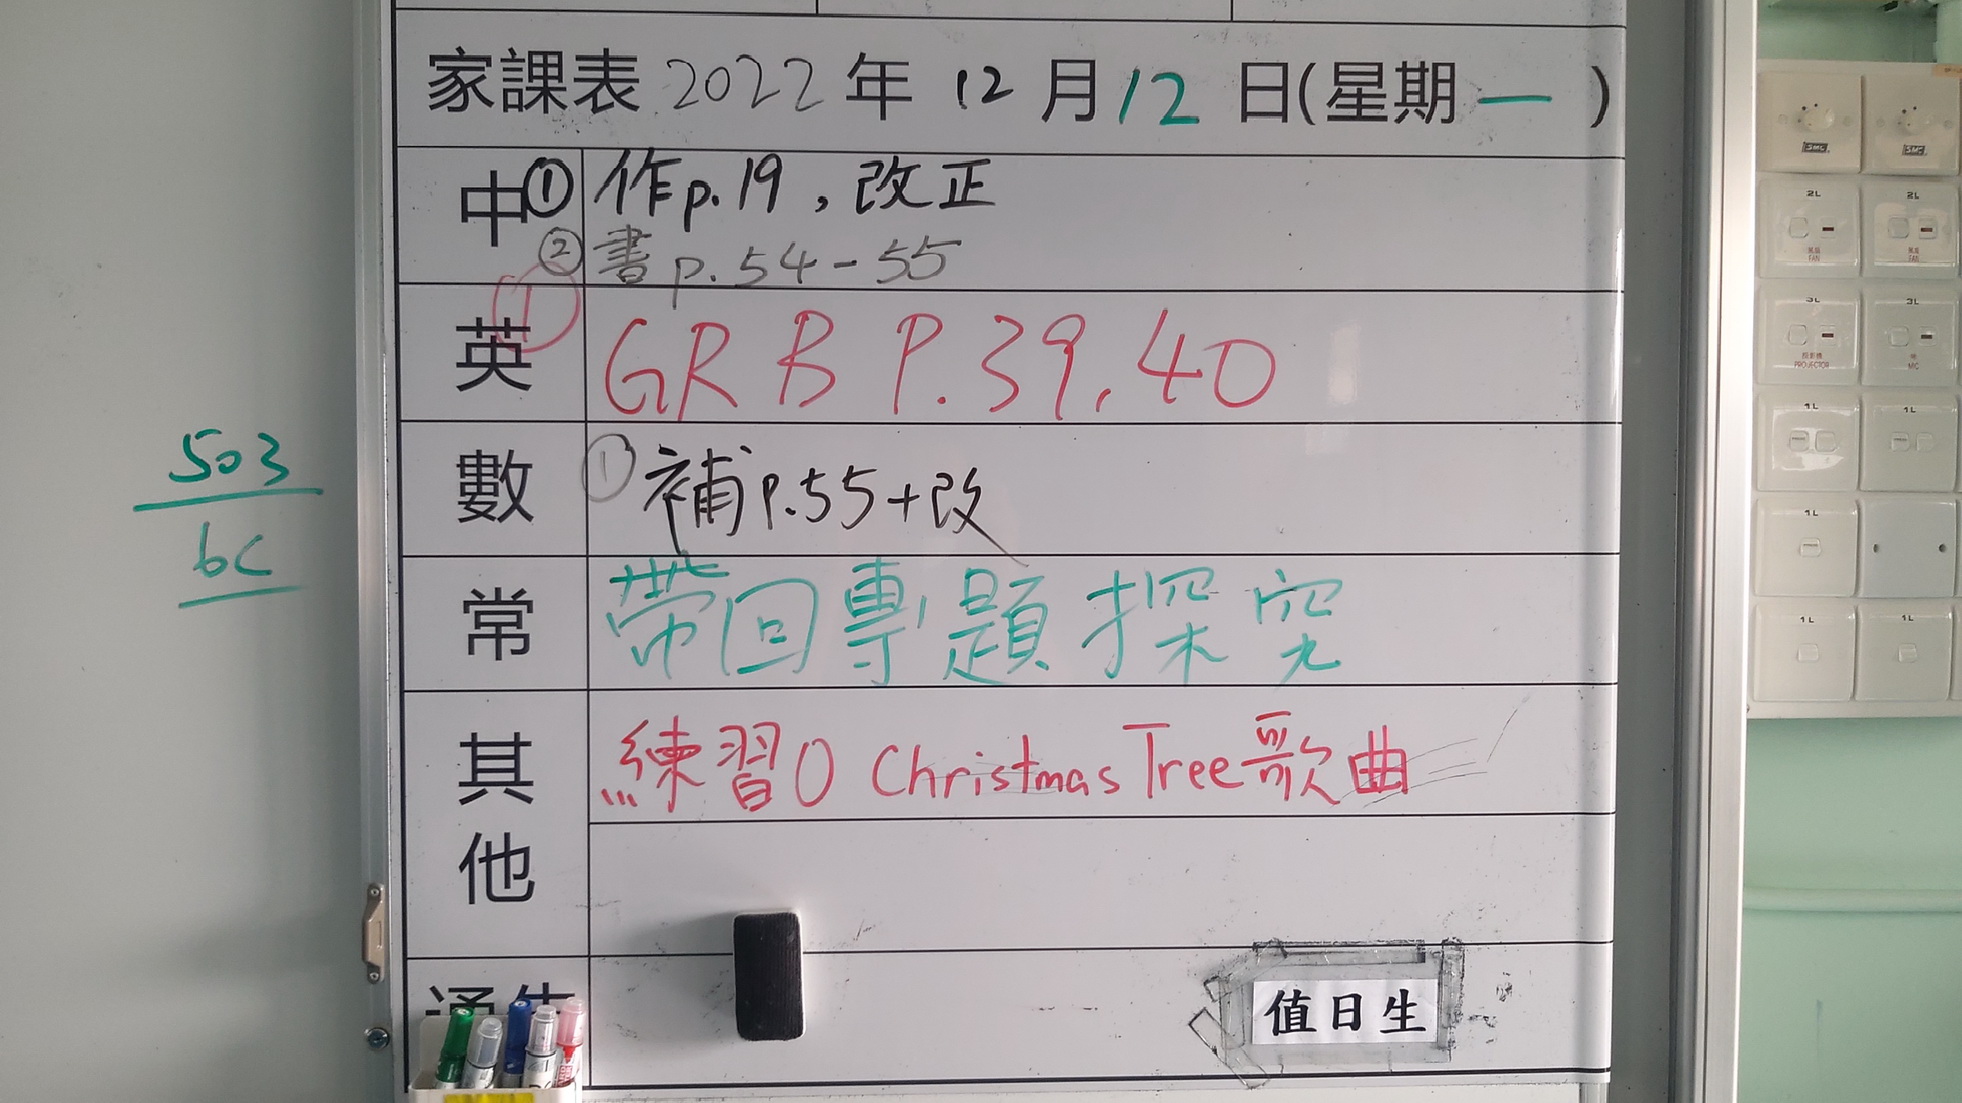 家課表 2022 年 12 月 12 日(星期 一 )
中 ① 作p.19,改正
② 書p.54-55
英 ① GR B P.39,40
數 ① 補P.55+改
常 帶回專題探究
其他 練習O Christmas Tree歌曲
值日生
503
6C
2L
2L
風扇
FAN
風扇
FAN
3L
3L
投影機
PROJECTOR
MIC
1L
1L
1L
1L
1L
SMC
SMC